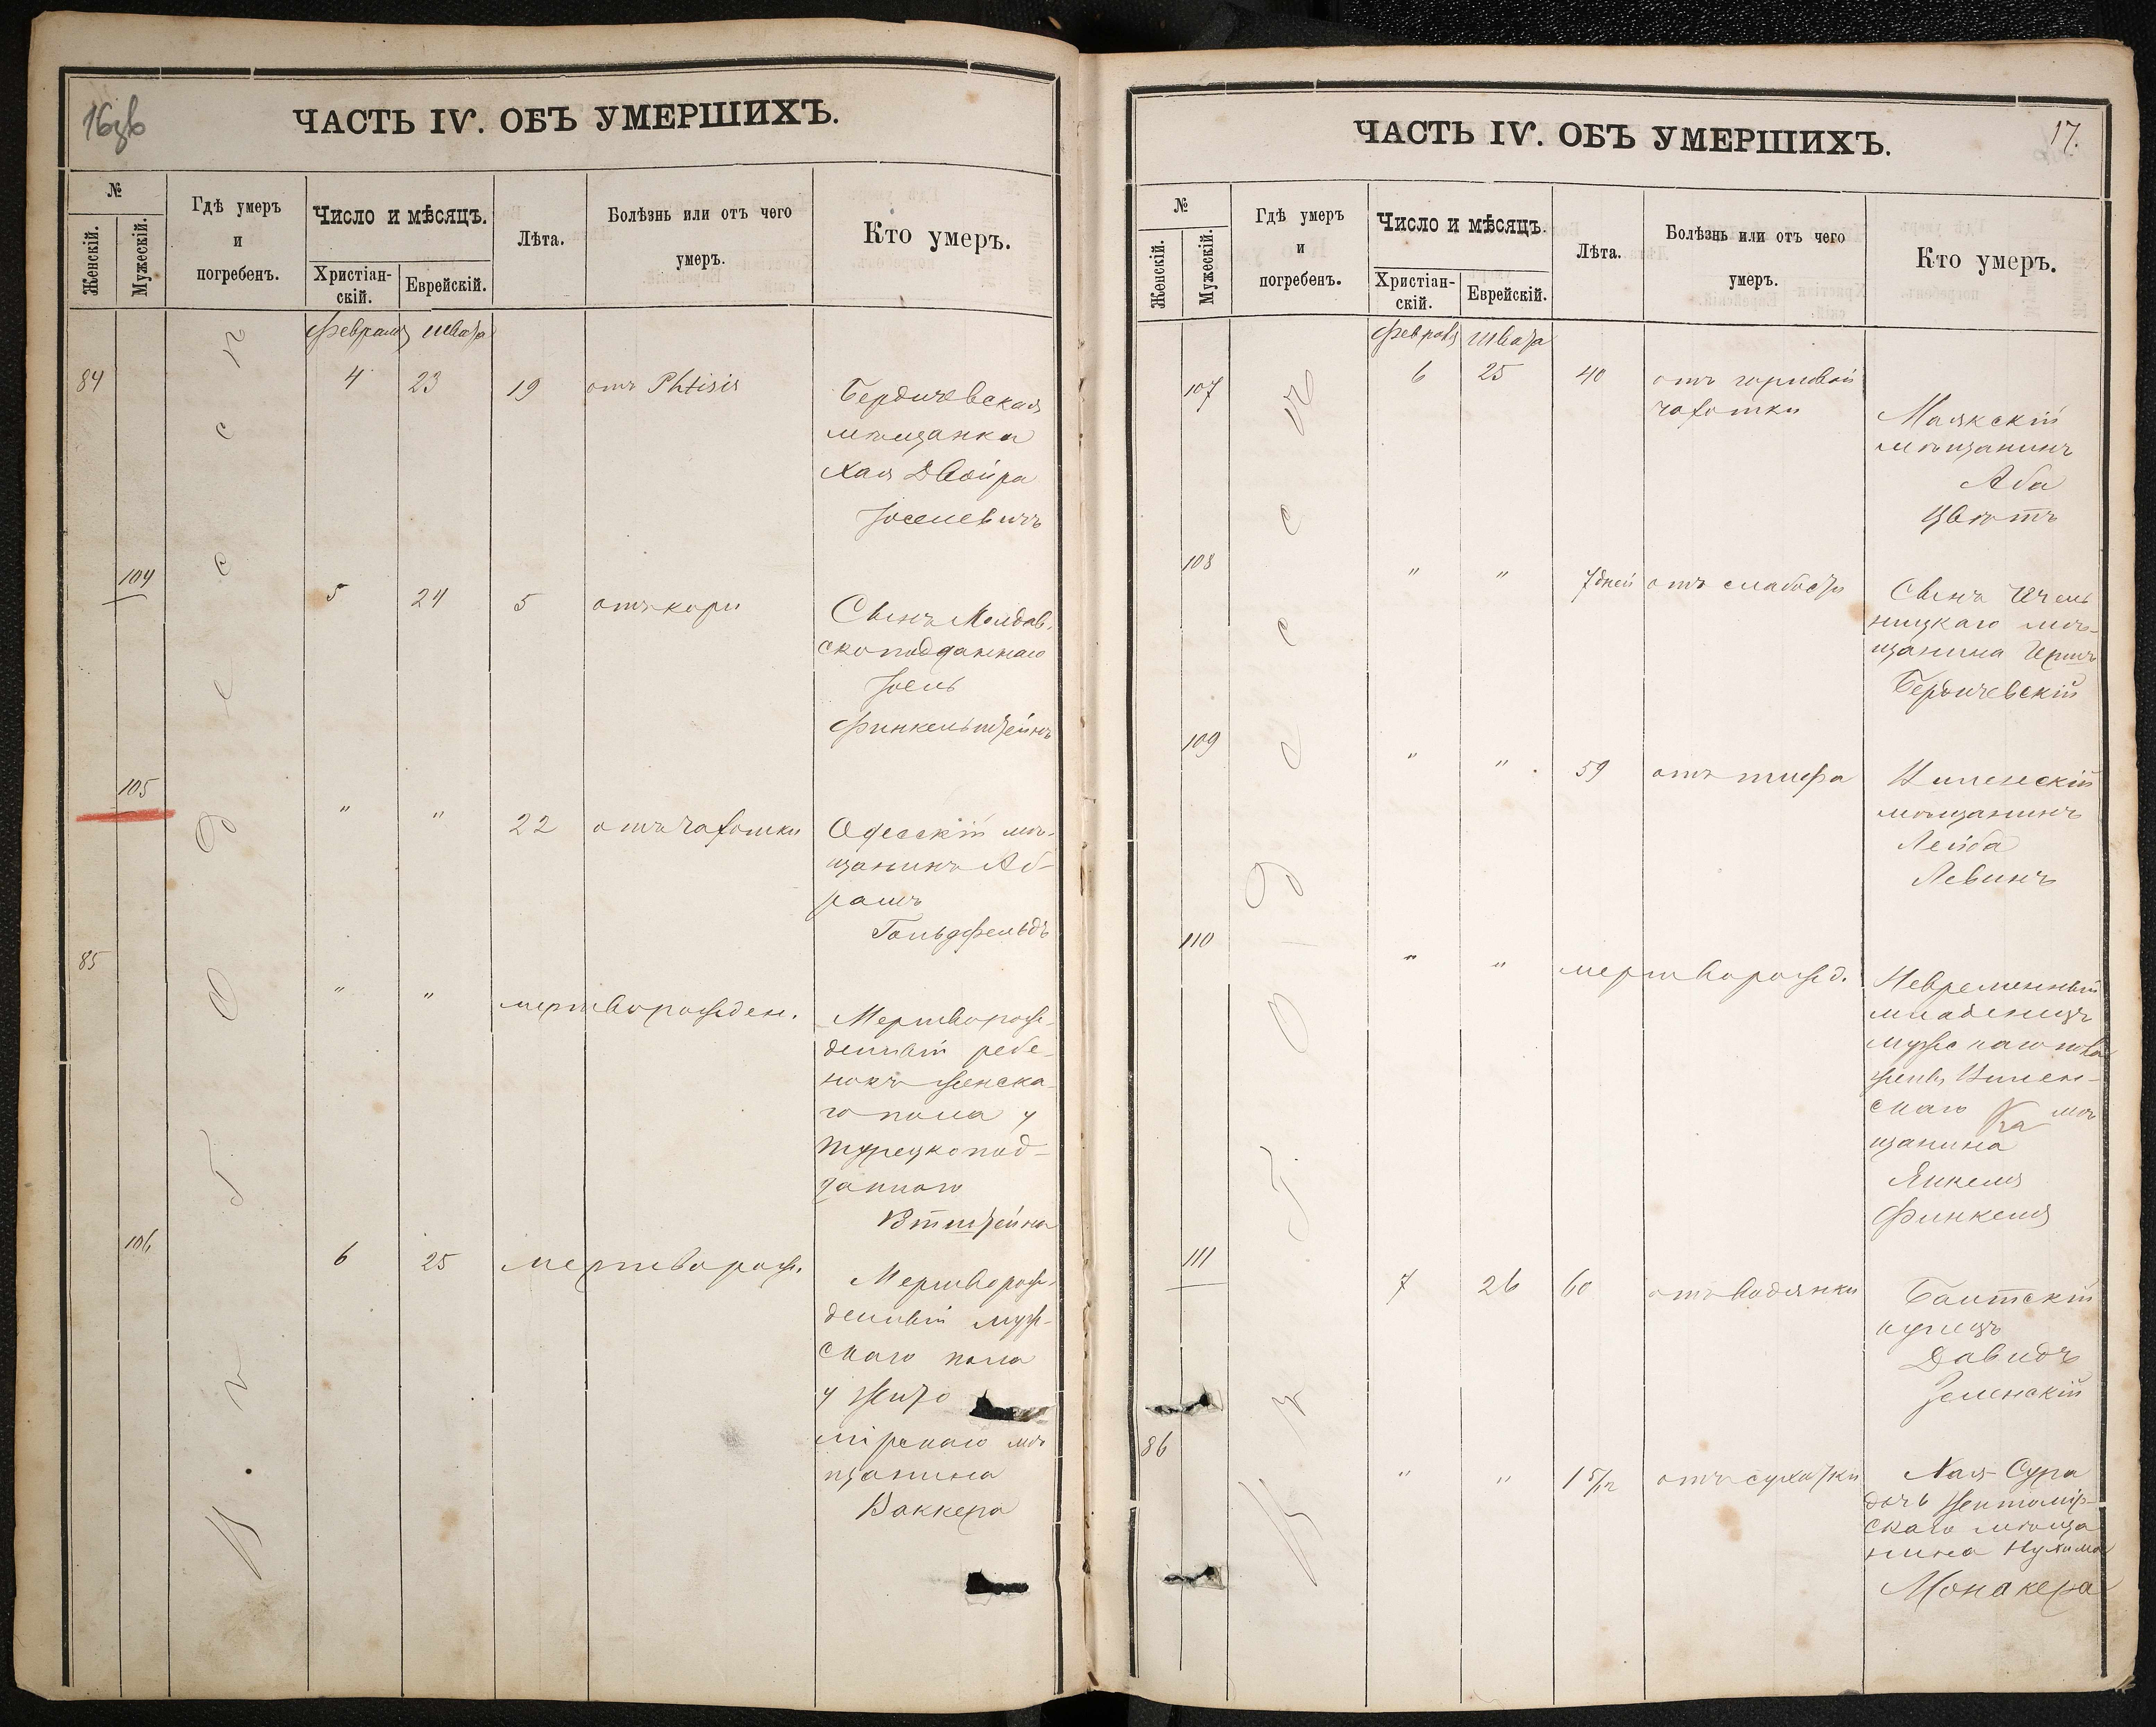 16зв
ЧАСТЬ IV. ОБЪ УМЕРШИХЪ.
№
Женскій.
Мужескій.
Гдѣ умеръ
и
погребенъ.
Число и мѣсяцъ.
Христіан-
скій.
Еврейскій.
Лѣта.
Болѣзнь или отъ чего
умеръ.
Кто умеръ.
Въ г. Одессѣ
Февраля Швата
84 4 23 19 отъ Phtisis
Бердичевская
мѣщанка
Хая Двойра
Іоселевичъ
104 5 24 5 отъ кори
Сынъ Молдав-
скоподданнаго
Іось
Финкельштейнъ
105 " " 22 отъ чахотки
Одесскій мѣ-
щанинъ Аб-
рамъ
Гольдфельдъ
85 " " мертворожден.
Мертворож-
денный ребе-
нокъ женска-
го пола у
турецкопод-
даннаго
106 6 25 мертворож.
Мертворож-
денный муж-
скаго пола
у Жито
мірскаго мѣ
щанина
Ваккера
17.
ЧАСТЬ IV. ОБЪ УМЕРШИХЪ.
№
Женскій.
Мужескій.
Гдѣ умеръ
и
погребенъ.
Число и мѣсяцъ.
Христіан-
скій.
Еврейскій.
Лѣта.
Болѣзнь или отъ чего
умеръ.
Кто умеръ.
Въ г. Одессѣ
Февраля Швата
107 6 25 40 отъ горловой
чахотки
Маякскій
мѣщанинъ
Аба
Цвютъ
108 " " 7 дней отъ слабости
Сынъ
ницкаго мѣ-
щанина Герша
Бердичевскій
109 " " 59 отъ тифа
Виленскій
мѣщанинъ
Лейба
Левинъ
110 " " мертворожд.
Невременный
младенецъ
мужскаго пола
жены Вилен-
скаго мѣ
щанина
Янкеля
Финкеля
111 7 26 60 отъ водянки
Балтскій
купецъ
Давидъ
Зеленскій
86 " " 1 5/12 отъ сухотки
Хая-Сура
дочь Житомір-
скаго мѣща
нина Нухима
Монакера